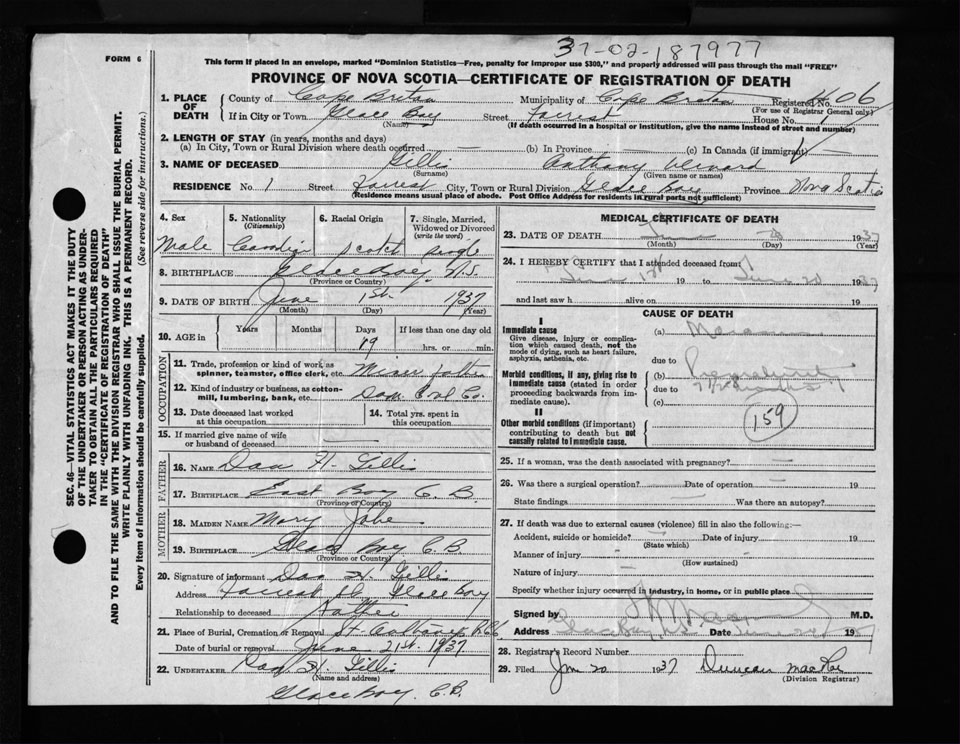 37-02-187977
FORM 6
This form if placed in an envelope, marked "Dominion Statistics—Free, penalty for improper use $300," and properly addressed will pass through the mail "FREE"
PROVINCE OF NOVA SCOTIA—CERTIFICATE OF REGISTRATION OF DEATH
SEC. 46—VITAL STATISTICS ACT MAKES IT THE DUTY
OF THE UNDERTAKER OR PERSON ACTING AS UNDER-
TAKER TO OBTAIN ALL THE PARTICULARS REQUIRED
IN THE "CERTIFICATE OF REGISTRATION OF DEATH"
AND TO FILE THE SAME WITH THE DIVISION REGISTRAR WHO SHALL ISSUE THE BURIAL PERMIT.
WRITE PLAINLY WITH UNFADING INK. THIS IS A PERMANENT RECORD.
Every item of information should be carefully supplied. (See reverse side for instructions.)
1. PLACE OF DEATH
County of Cape Breton Municipality of Cape Breton Registered No. 406
(For use of Registrar General only)
If in City or Town Glace Bay Street Forrest House No. 1
(Name) (If death occurred in a hospital or institution, give the name instead of street and number)
2. LENGTH OF STAY (in years, months and days)
(a) In City, Town or Rural Division where death occurred — (b) In Province — (c) In Canada (if immigrant)
3. NAME OF DECEASED Gillis Anthony Vernard
(Surname) (Given name or names)
RESIDENCE No. 1 Street Forrest City, Town or Rural Division Glace Bay Province Nova Scotia
(Residence means usual place of abode. Post Office Address for residents in rural parts not sufficient)
4. Sex
Male
5. Nationality
(Citizenship)
Canadian
6. Racial Origin
Scotch
7. Single, Married,
Widowed or Divorced
(write the word)
Single
8. BIRTHPLACE Glace Bay N.S.
(Province or Country)
9. DATE OF BIRTH June 1st 1937
(Month) (Day) (Year)
10. AGE in
Years Months Days If less than one day old
19 hrs. or min.
OCCUPATION
11. Trade, profession or kind of work, as
spinner, teamster, office clerk, etc. Miner father
12. Kind of industry or business, as cotton-
mill, lumbering, bank, etc. Dom. Coal Co.
13. Date deceased last worked
at this occupation
14. Total yrs. spent in
this occupation
15. If married give name of wife
or husband of deceased
FATHER
16. NAME Dan H. Gillis
17. BIRTHPLACE East Bay C. B.
(Province or Country)
MOTHER
18. MAIDEN NAME Mary
19. BIRTHPLACE Glace Bay C.B.
(Province or Country)
20. Signature of informant Dan H. Gillis
Address Forrest St. Glace Bay
Relationship to deceased Father
21. Place of Burial, Cremation or Removal St. Anthony's
Date of burial or removal June 21st 1937.
22. UNDERTAKER Dan H. Gillis
(Name and address)
Glace Bay, C.B.
MEDICAL CERTIFICATE OF DEATH
23. DATE OF DEATH June 20 1937
(Month) (Day) (Year)
24. I HEREBY CERTIFY that I attended deceased from
June 1st 19 to June 20 1937
and last saw h alive on 19
CAUSE OF DEATH
I
Immediate cause
Give disease, injury or complica-
tion which caused death, not the
mode of dying, such as heart failure,
asphyxia, asthenia, etc.
(a)
due to
Morbid conditions, if any, giving rise to
immediate cause (stated in order
proceeding backwards from im-
mediate cause).
(b)
due to
(c)
II
Other morbid conditions (if important)
contributing to death but not
causally related to immediate cause.
159
25. If a woman, was the death associated with pregnancy? —
26. Was there a surgical operation? — Date of operation — 19
State findings Was there an autopsy?
27. If death was due to external causes (violence) fill in also the following:—
Accident, suicide or homicide? Date of injury 19
(State which)
Manner of injury
(How sustained)
Nature of injury
Specify whether injury occurred in industry, in home, or in public place
Signed by M.D.
Address Glace Bay N.S. Date June 20 1937
28. Registrar's Record Number
29. Filed Jun 20 1937 Duncan MacRae
(Division Registrar)